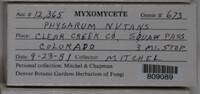 Acc # 12,365 MYXOMYCETE Genus # 673
PHYSARUM NUTANS
Place CLEAR CREEK CO, SQUAW PASS
COLORADO 3 MI. STOP
Date 9-23-81 Collector MITCHEL
Personal collection: Mitchel & Chapman
Denver Botanic Gardens Herbarium of Fungi
809089